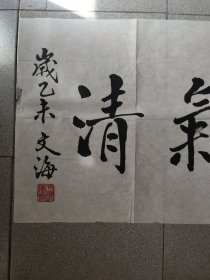 氣清
歲乙未文海